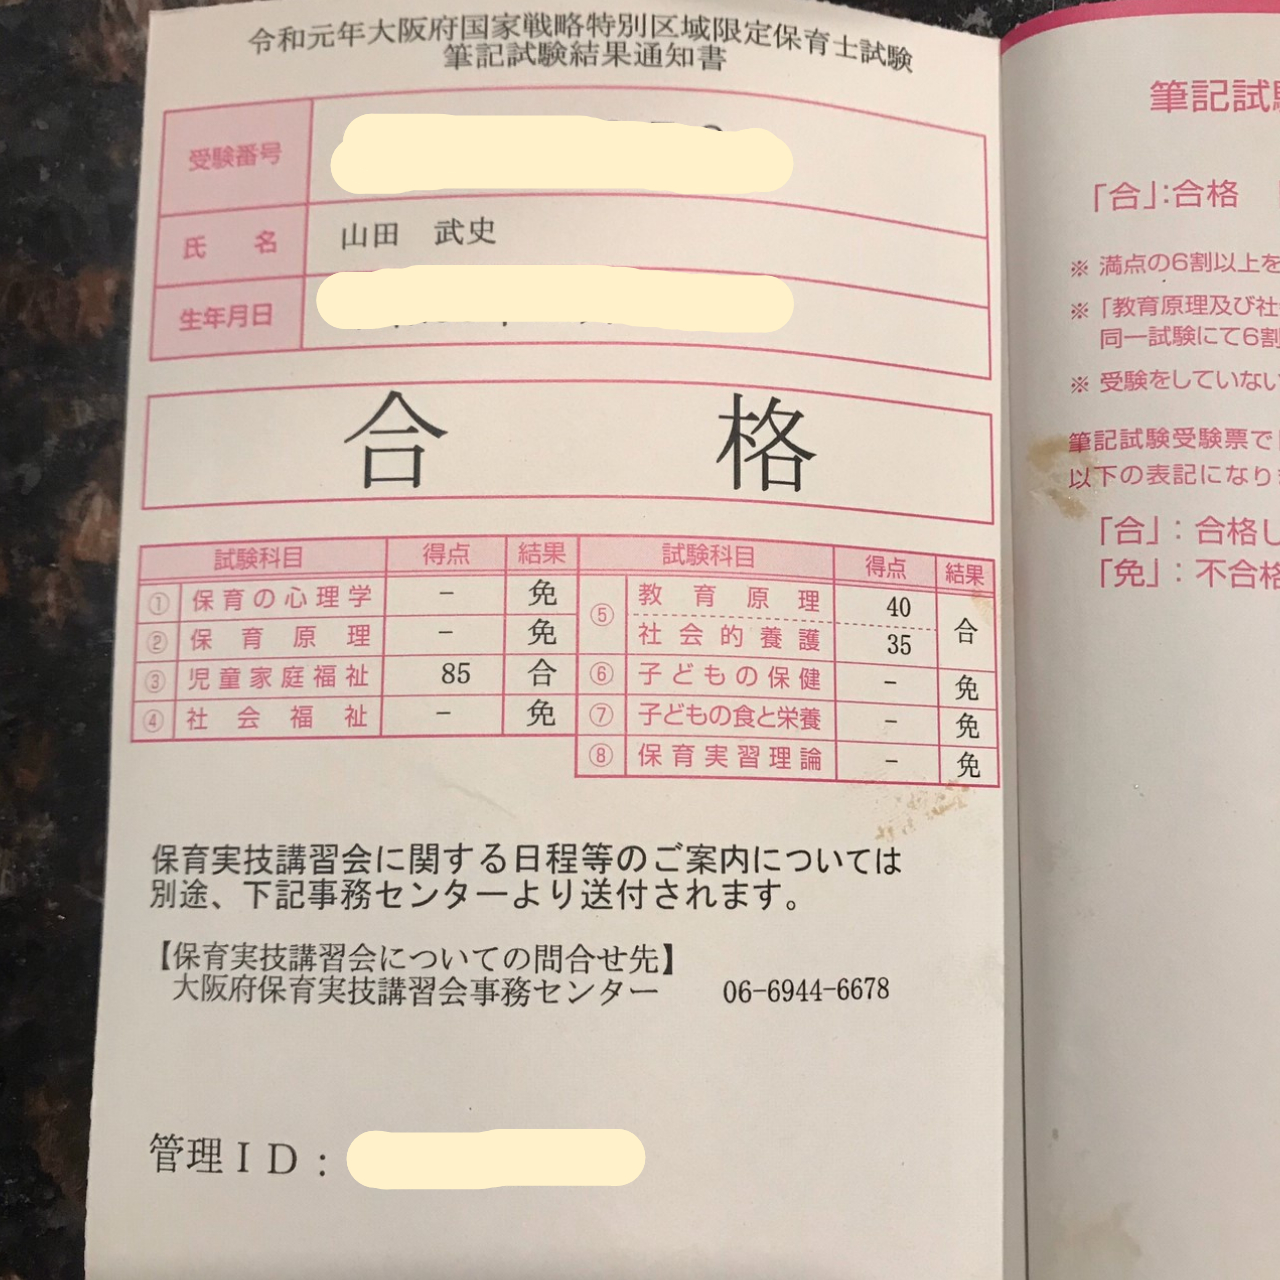 令和元年大阪府国家戦略特別区域限定保育士試験
筆記試験結果通知書
受験番号
氏 名 山田 武史
生年月日
合 格
試験科目 得点 結果
① 保育の心理学 － 免
② 保育原理 － 免
③ 児童家庭福祉 85 合
④ 社会福祉 － 免
試験科目 得点 結果
⑤ 教育原理 40 合
社会的養護 35
⑥ 子どもの保健 － 免
⑦ 子どもの食と栄養 － 免
⑧ 保育実習理論 － 免
保育実技講習会に関する日程等のご案内については
別途、下記事務センターより送付されます。
【保育実技講習会についての問合せ先】
大阪府保育実技講習会事務センター 06-6944-6678
管理ＩＤ：
筆記試
「合」：合格
※ 満点の6割以上を
※ 「教育原理及び社
同一試験にて6割
※ 受験をしていない
筆記試験受験票で
以下の表記になり
「合」：合格し
「免」：不合格